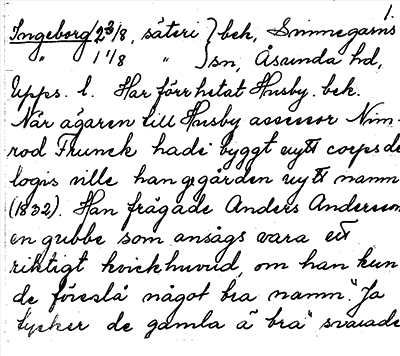 1.
Ingeborg 2 3/8, säteri } bek, Simmegarns
" 1 1/8 " } sn, Åsunda hd,
Upps. l. Har förr hetat Husby. bek.
När ägaren till Husby assessor Nim-
rod Frunck hade byggt nytt corps de
logis ville han ge gården nytt namn
(1832). Han frågade Anders Andersson
en gubbe som ansågs vara ett
riktigt kvickhuvud, om han kun
de föreslå något bra namn. "Ja
tycker de gamla ä bra" svarade